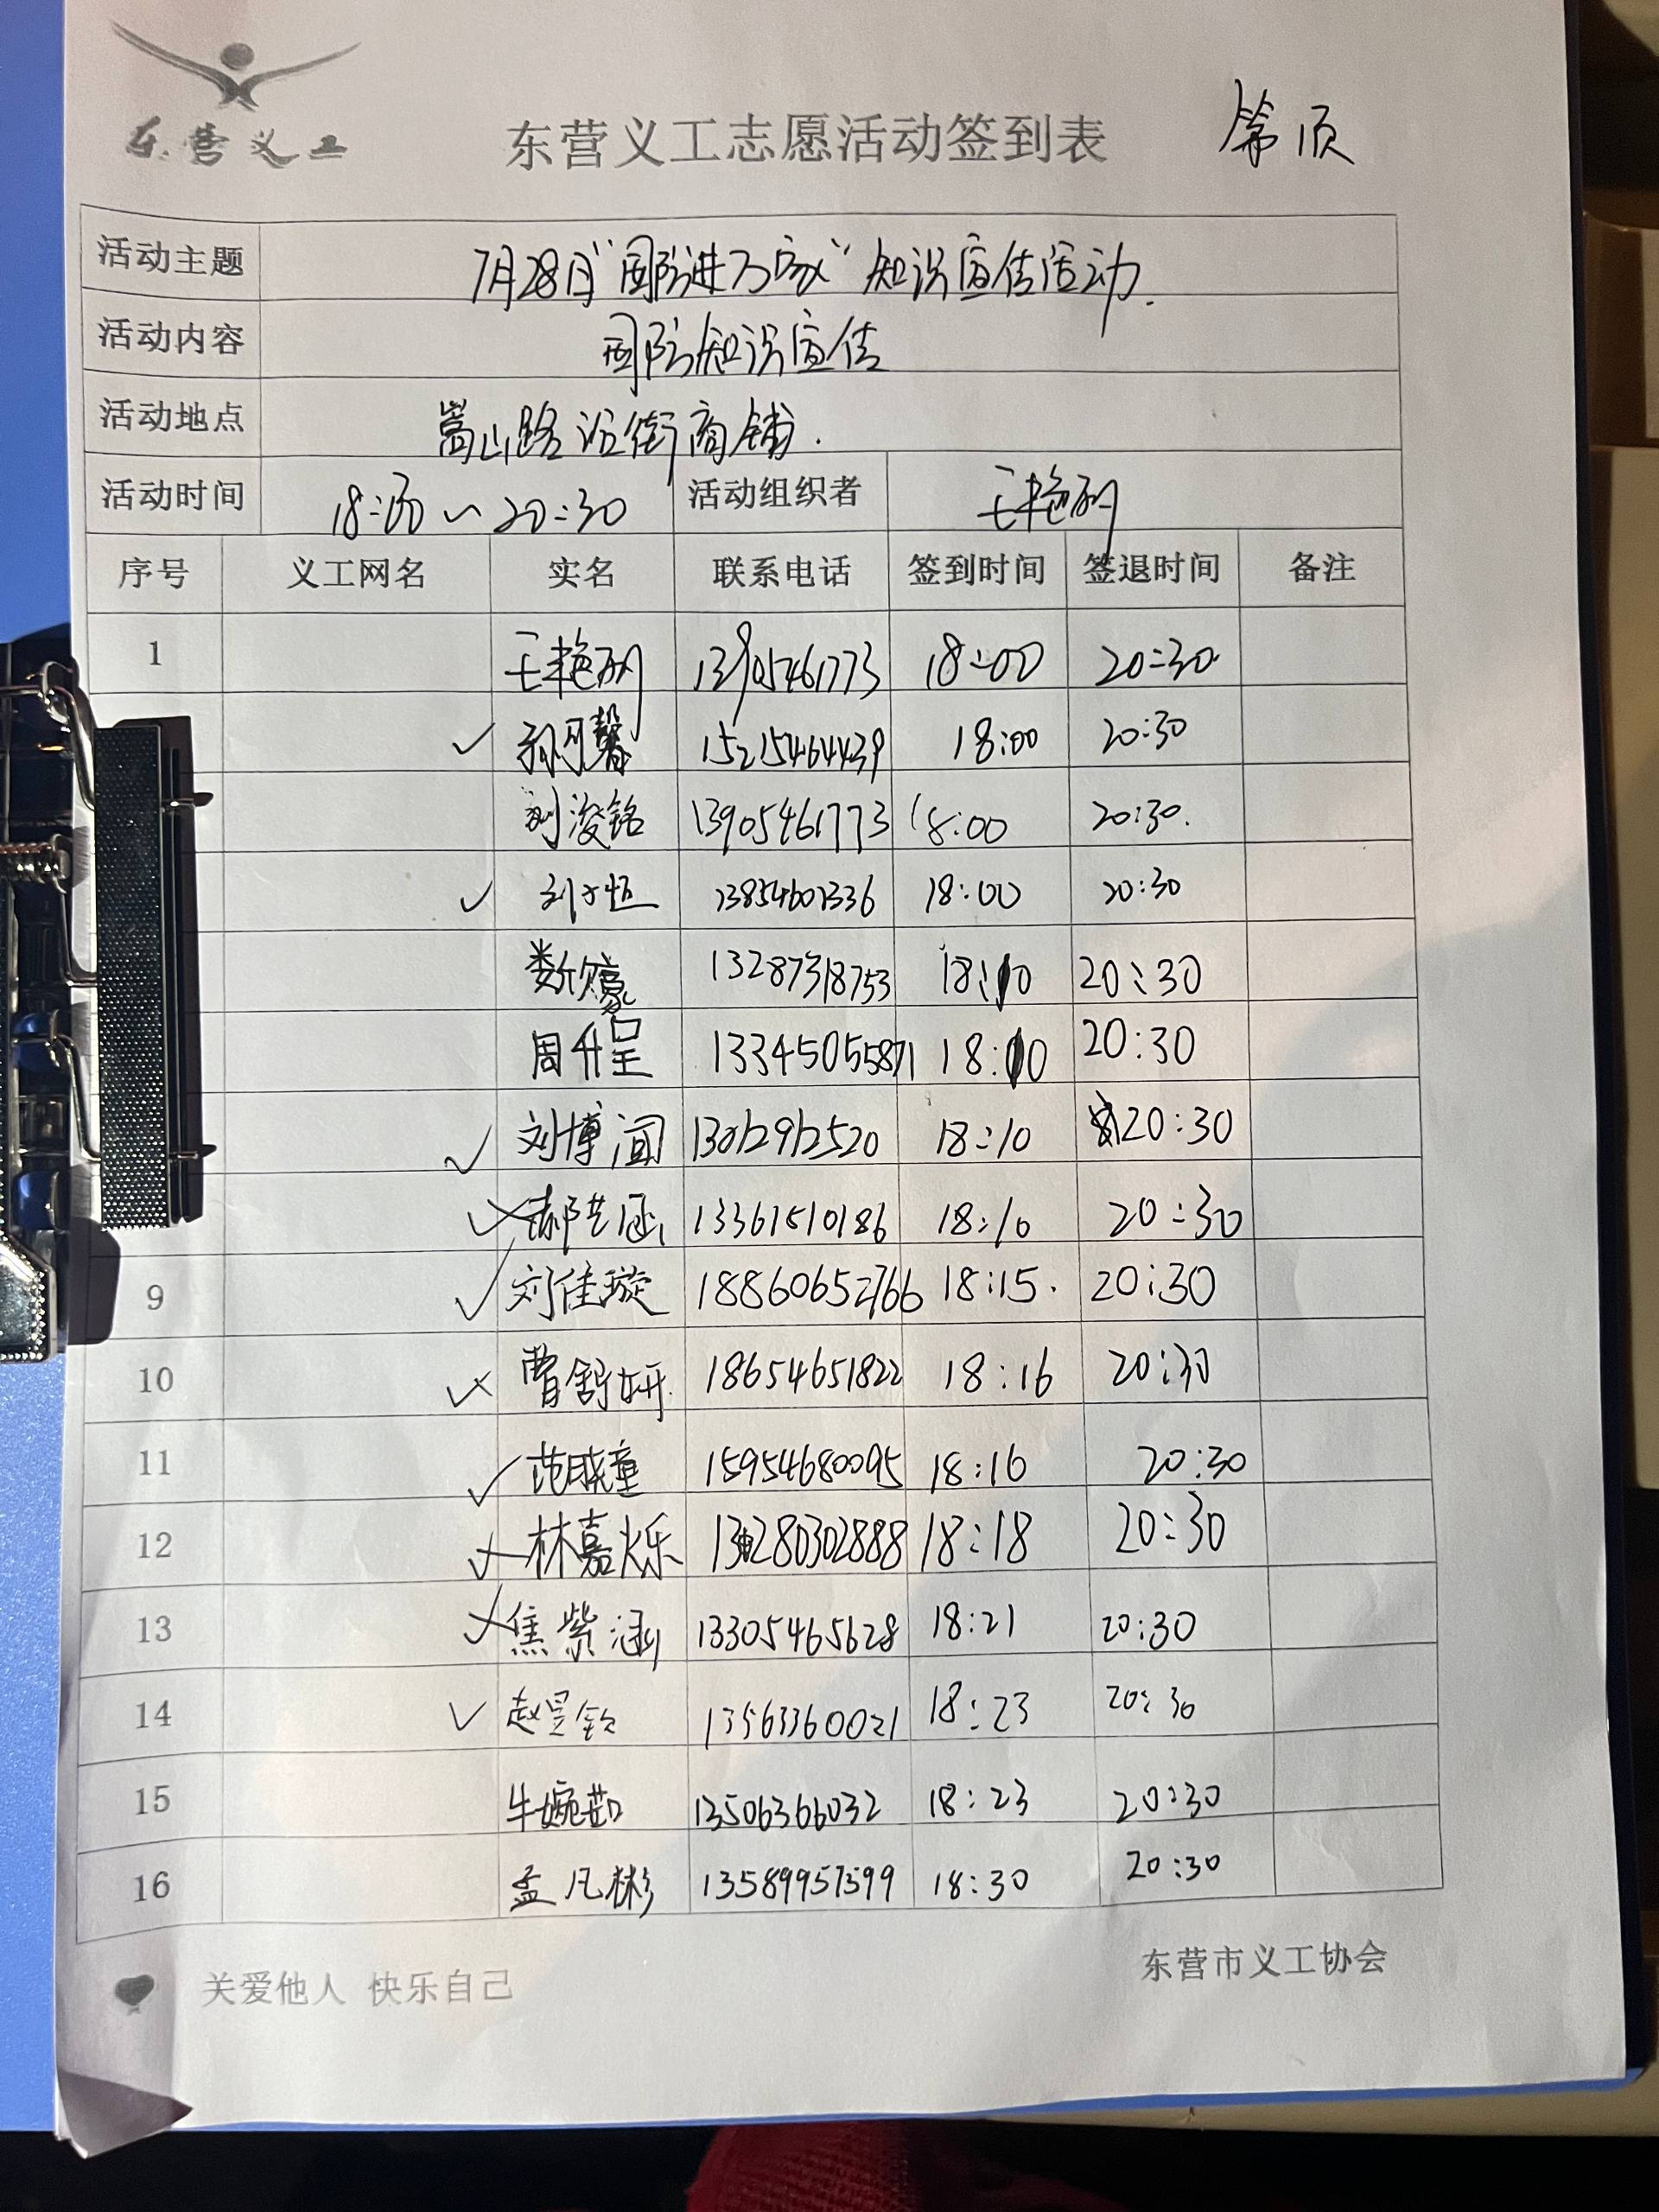 东营义工
东营义工志愿活动签到表 第1页
活动主题 7月28日"国防进万家"知识宣传活动.
活动内容 国防知识宣传
活动地点 嵩山路沿街商铺.
活动时间 18:00~20:30 活动组织者 王艳丽
序号 义工网名 实名 联系电话 签到时间 签退时间 备注
1 王艳丽 13905461773 18:00 20:30
✓ 孙可馨 15215464439 18:00 20:30
刘浚铭 13905461773 18:00 20:30.
✓ 刘子恒 13854601336 18:00 20:30
娄欣豪 13287318753 18:10 20:30
周升呈 13345055871 18:10 20:30
✓ 刘博闻 13012912520 18:10 20:30
✓ 郝艺涵 13361510186 18:10 20:30
9 ✓ 刘佳璇 18860652766 18:15. 20:30
10 ✓ 曹舒妍. 18654651822 18:16 20:30
11 ✓ 范晓童 15954680095 18:16 20:30
12 ✓ 林嘉烁 13280302888 18:18 20:30
13 ✓ 焦紫涵 13305465628 18:21 20:30
14 ✓ 赵昱钦 13563360021 18:23 20:30
15 牛婉茹 13506366032 18:23 20:30
16 孟凡彬 13589957599 18:30 20:30
关爱他人 快乐自己
东营市义工协会